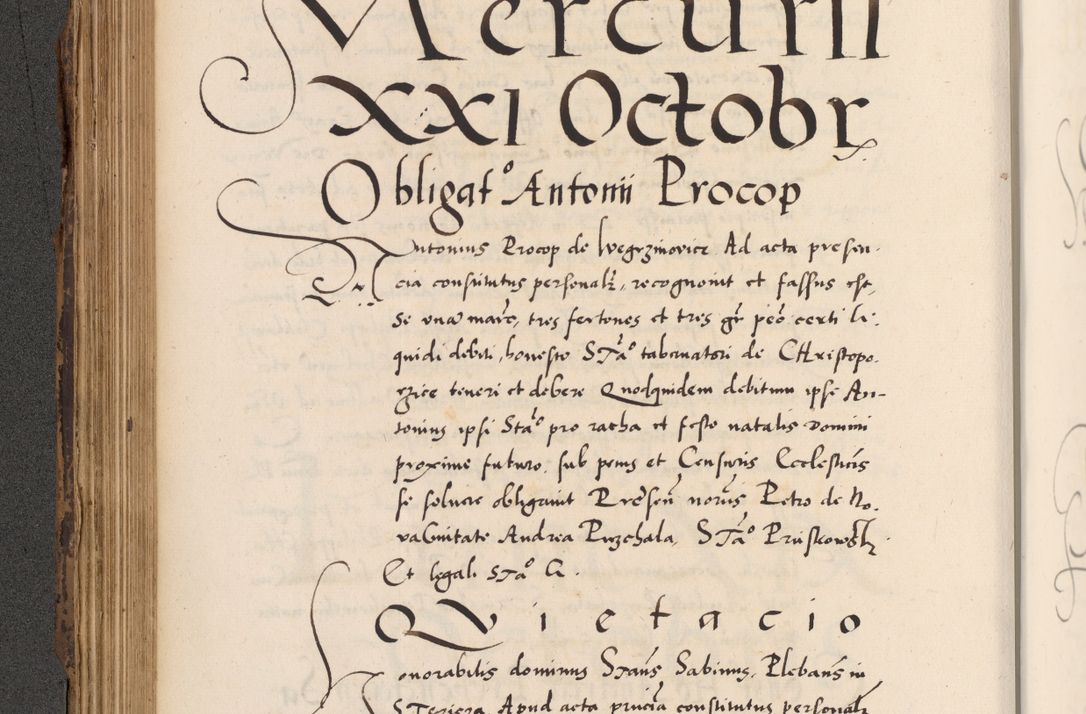 Mercurii
XXI Octobr
Obligat° Antonii Procop
Antonius Procop de Wegrzinovice Ad acta presen-
cia constitutus personalr, recognovit et fassus est,
se unam marc, tres fertones et tres gr pecc certi li-
quidi debiti, honesto Stão tabernatori de CHristopo-
rzice teneri et debere Quodquidem debitum ipse An-
tonius ipsi Stão pro racha et festo natalis Domini
proxime futuro, sub penis et Censuris Ecclesticis
se solvere obligavit Presen Petro de No-
vacivitate Andrea Stão
Et legali Stão G.
Qvietacio
Honorabilis dominus Stans Sabinus, Plebans in
Apud acta constitutus personalr